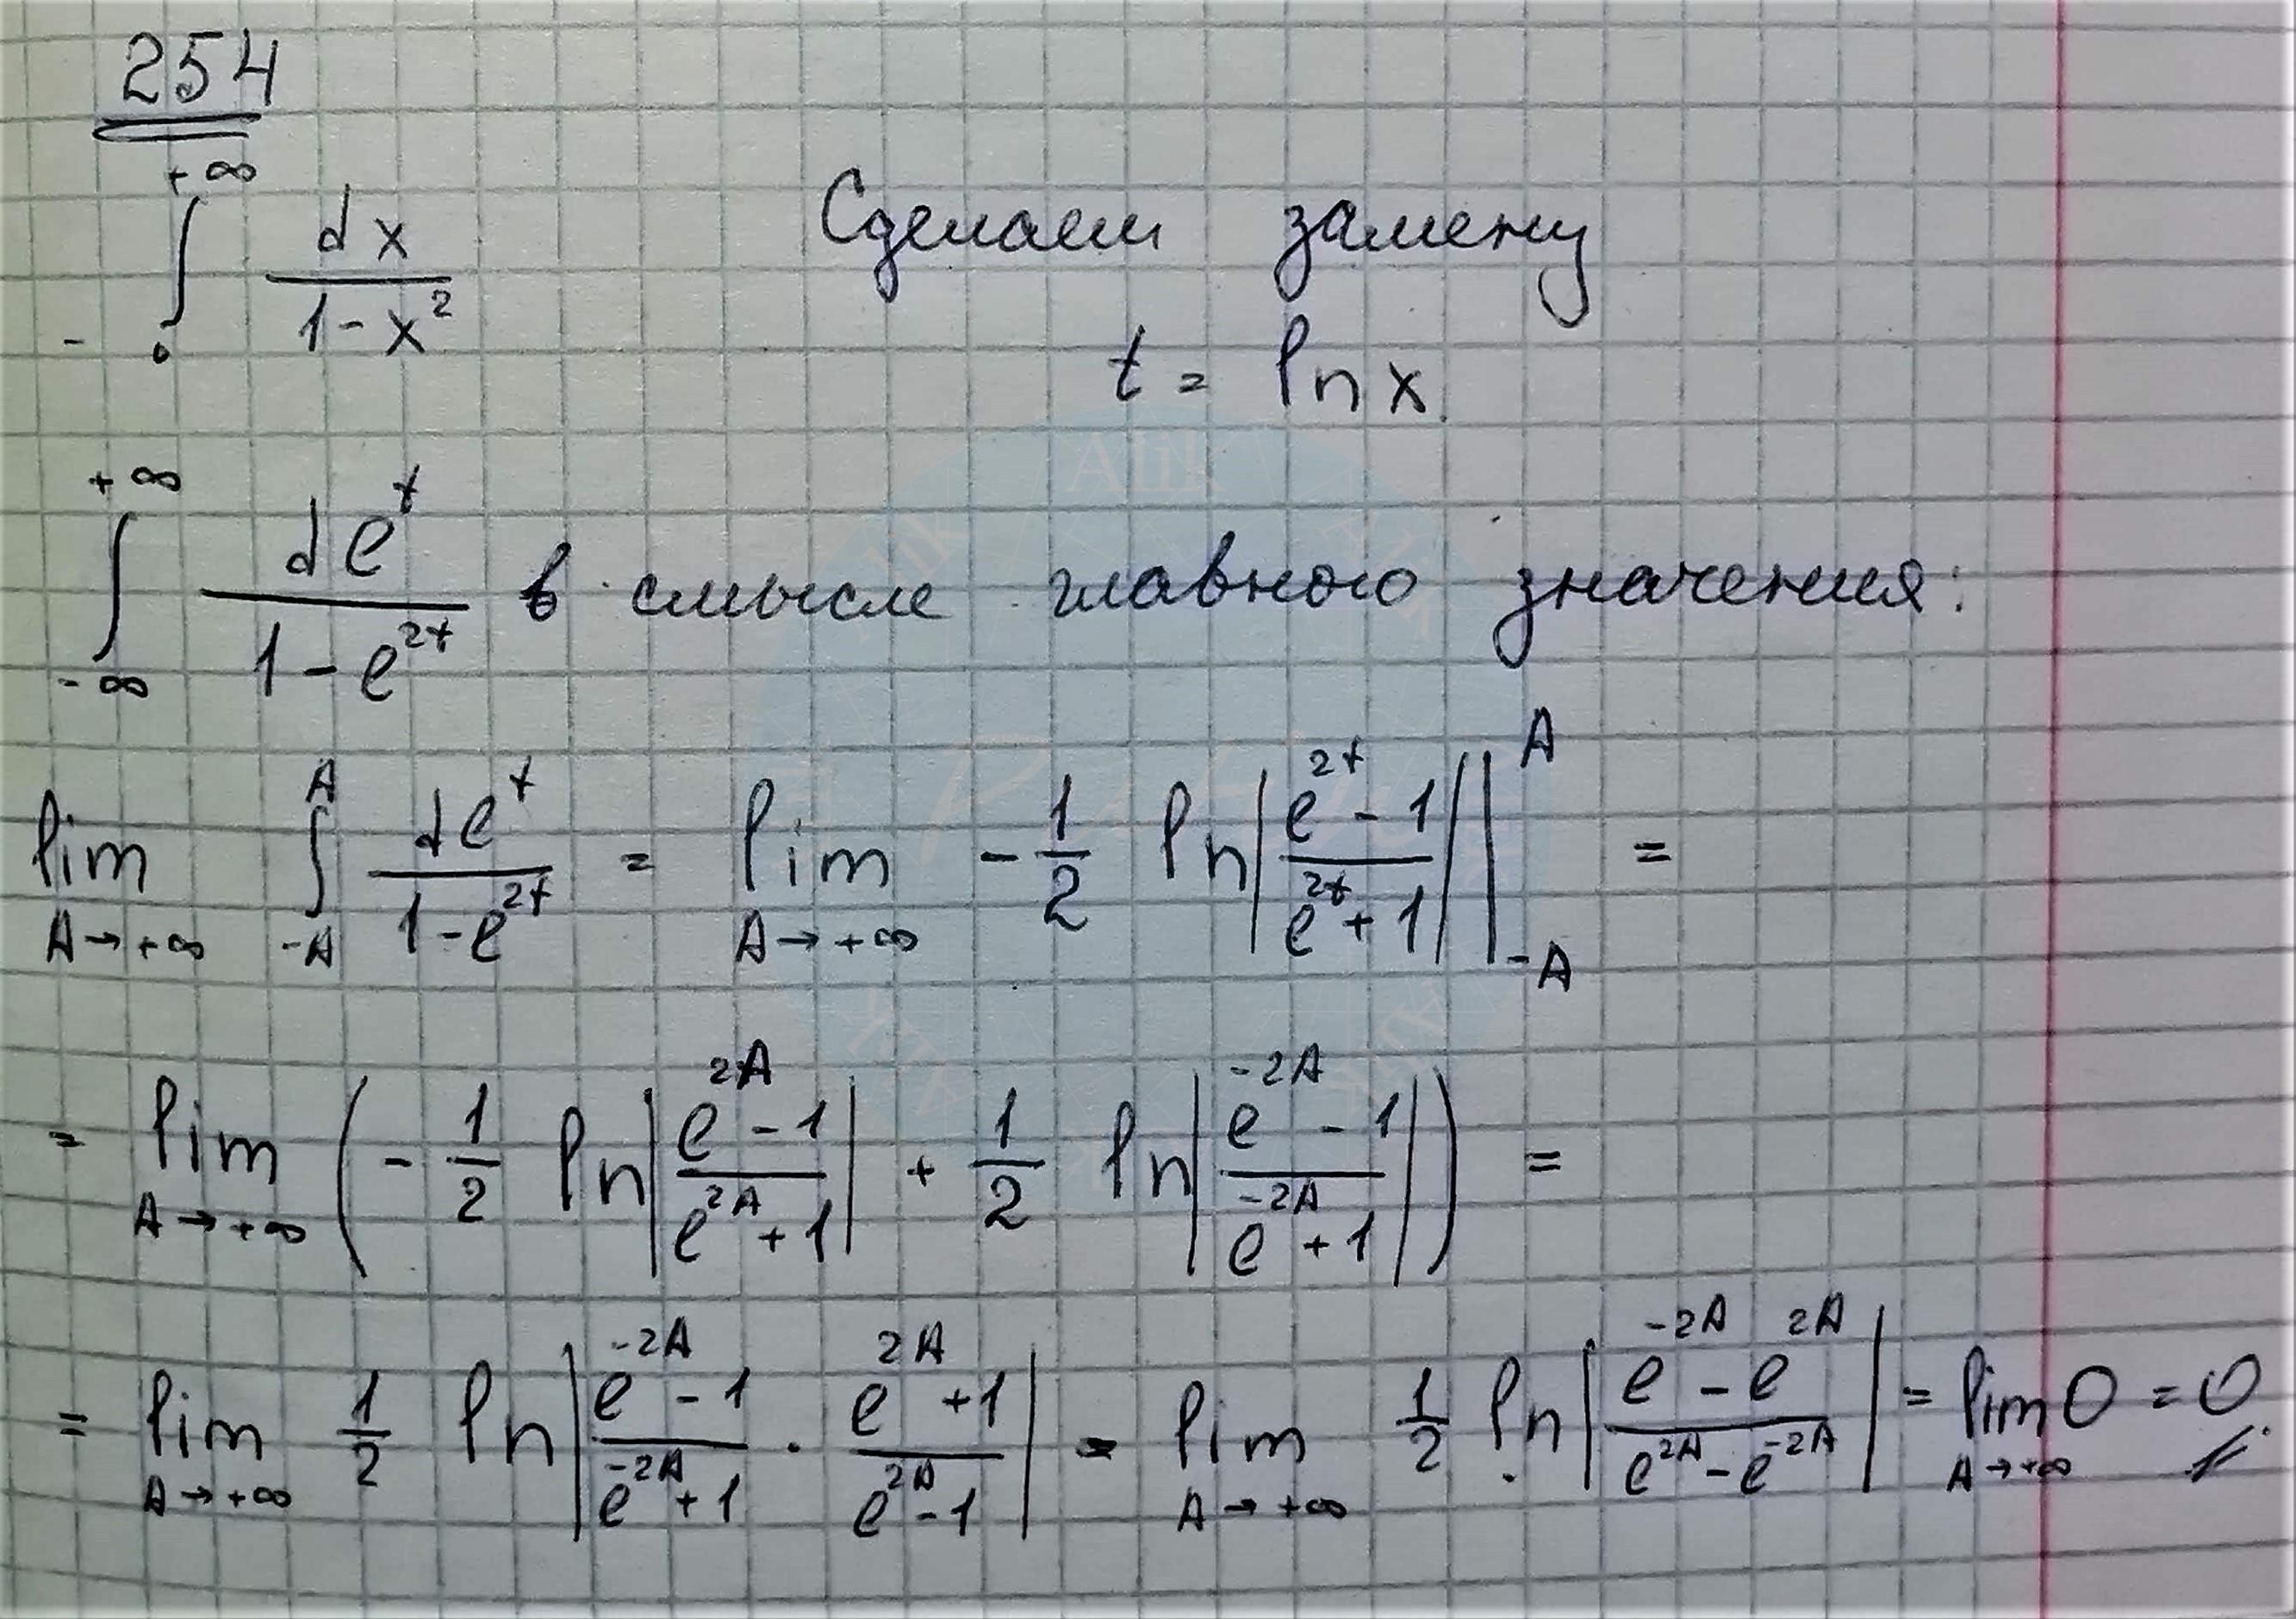 254
∫_0^{+∞} dx/(1-x²) Сделаем замену
t = ln x.
∫_{-∞}^{+∞} de^t/(1-e^{2t}) в смысле главного значения:
lim_{A→+∞} ∫_{-A}^{A} de^t/(1-e^{2t}) = lim_{A→+∞} -1/2 ln|(e^{2t}-1)/(e^{2t}+1)| |_{-A}^{A} =
= lim_{A→+∞} (-1/2 ln|(e^{2A}-1)/(e^{2A}+1)| + 1/2 ln|(e^{-2A}-1)/(e^{-2A}+1)|) =
= lim_{A→+∞} 1/2 ln|(e^{-2A}-1)/(e^{-2A}+1) · (e^{2A}+1)/(e^{2A}-1)| = lim_{A→+∞} 1/2 ln|(e^{-2A}-e^{2A})/(e^{2A}-e^{-2A})| = lim_{A→+∞} 0 = 0.
Alik